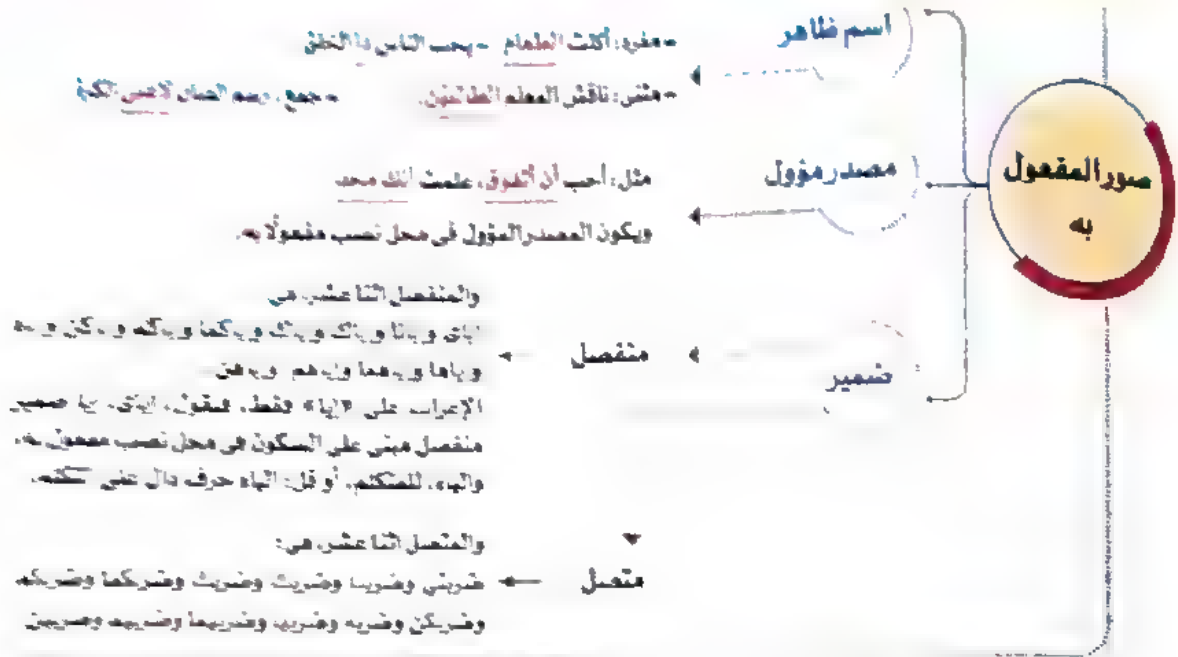 صور المفعول
به
اسم ظاهر
- مفرد: أكلت الطعام - يحب الناس ذا الخلق
- مثنى: ناقش المعلم الطالبين. - جمع: رسم لاعبى الكرة
مصدر مؤول
مثل: أحب أن أتفوق، علمت أنك مجد
ويكون المصدر المؤول فى محل نصب مفعولًا به.
ضمير
منفصل
والمنفصل اثنا عشر، هى
إياى وإيانا وإياك وإياك وإياكما وإياكم وإياكن وإياه
وإياها وإياهما وإياهم وإياهن
الإعراب على «إيا» فقط، فنقول: إياى: إيا ضمير
منفصل مبنى على السكون فى محل نصب مفعول به،
والياء للمتكلم، أو قل: الياء حرف دال على المتكلم.
متصل
والمتصل اثنا عشر، هى:
ضربنى وضربنا وضربك وضربك وضربكما وضربكم
وضربكن وضربه وضربها وضربهما وضربهم وضربهن